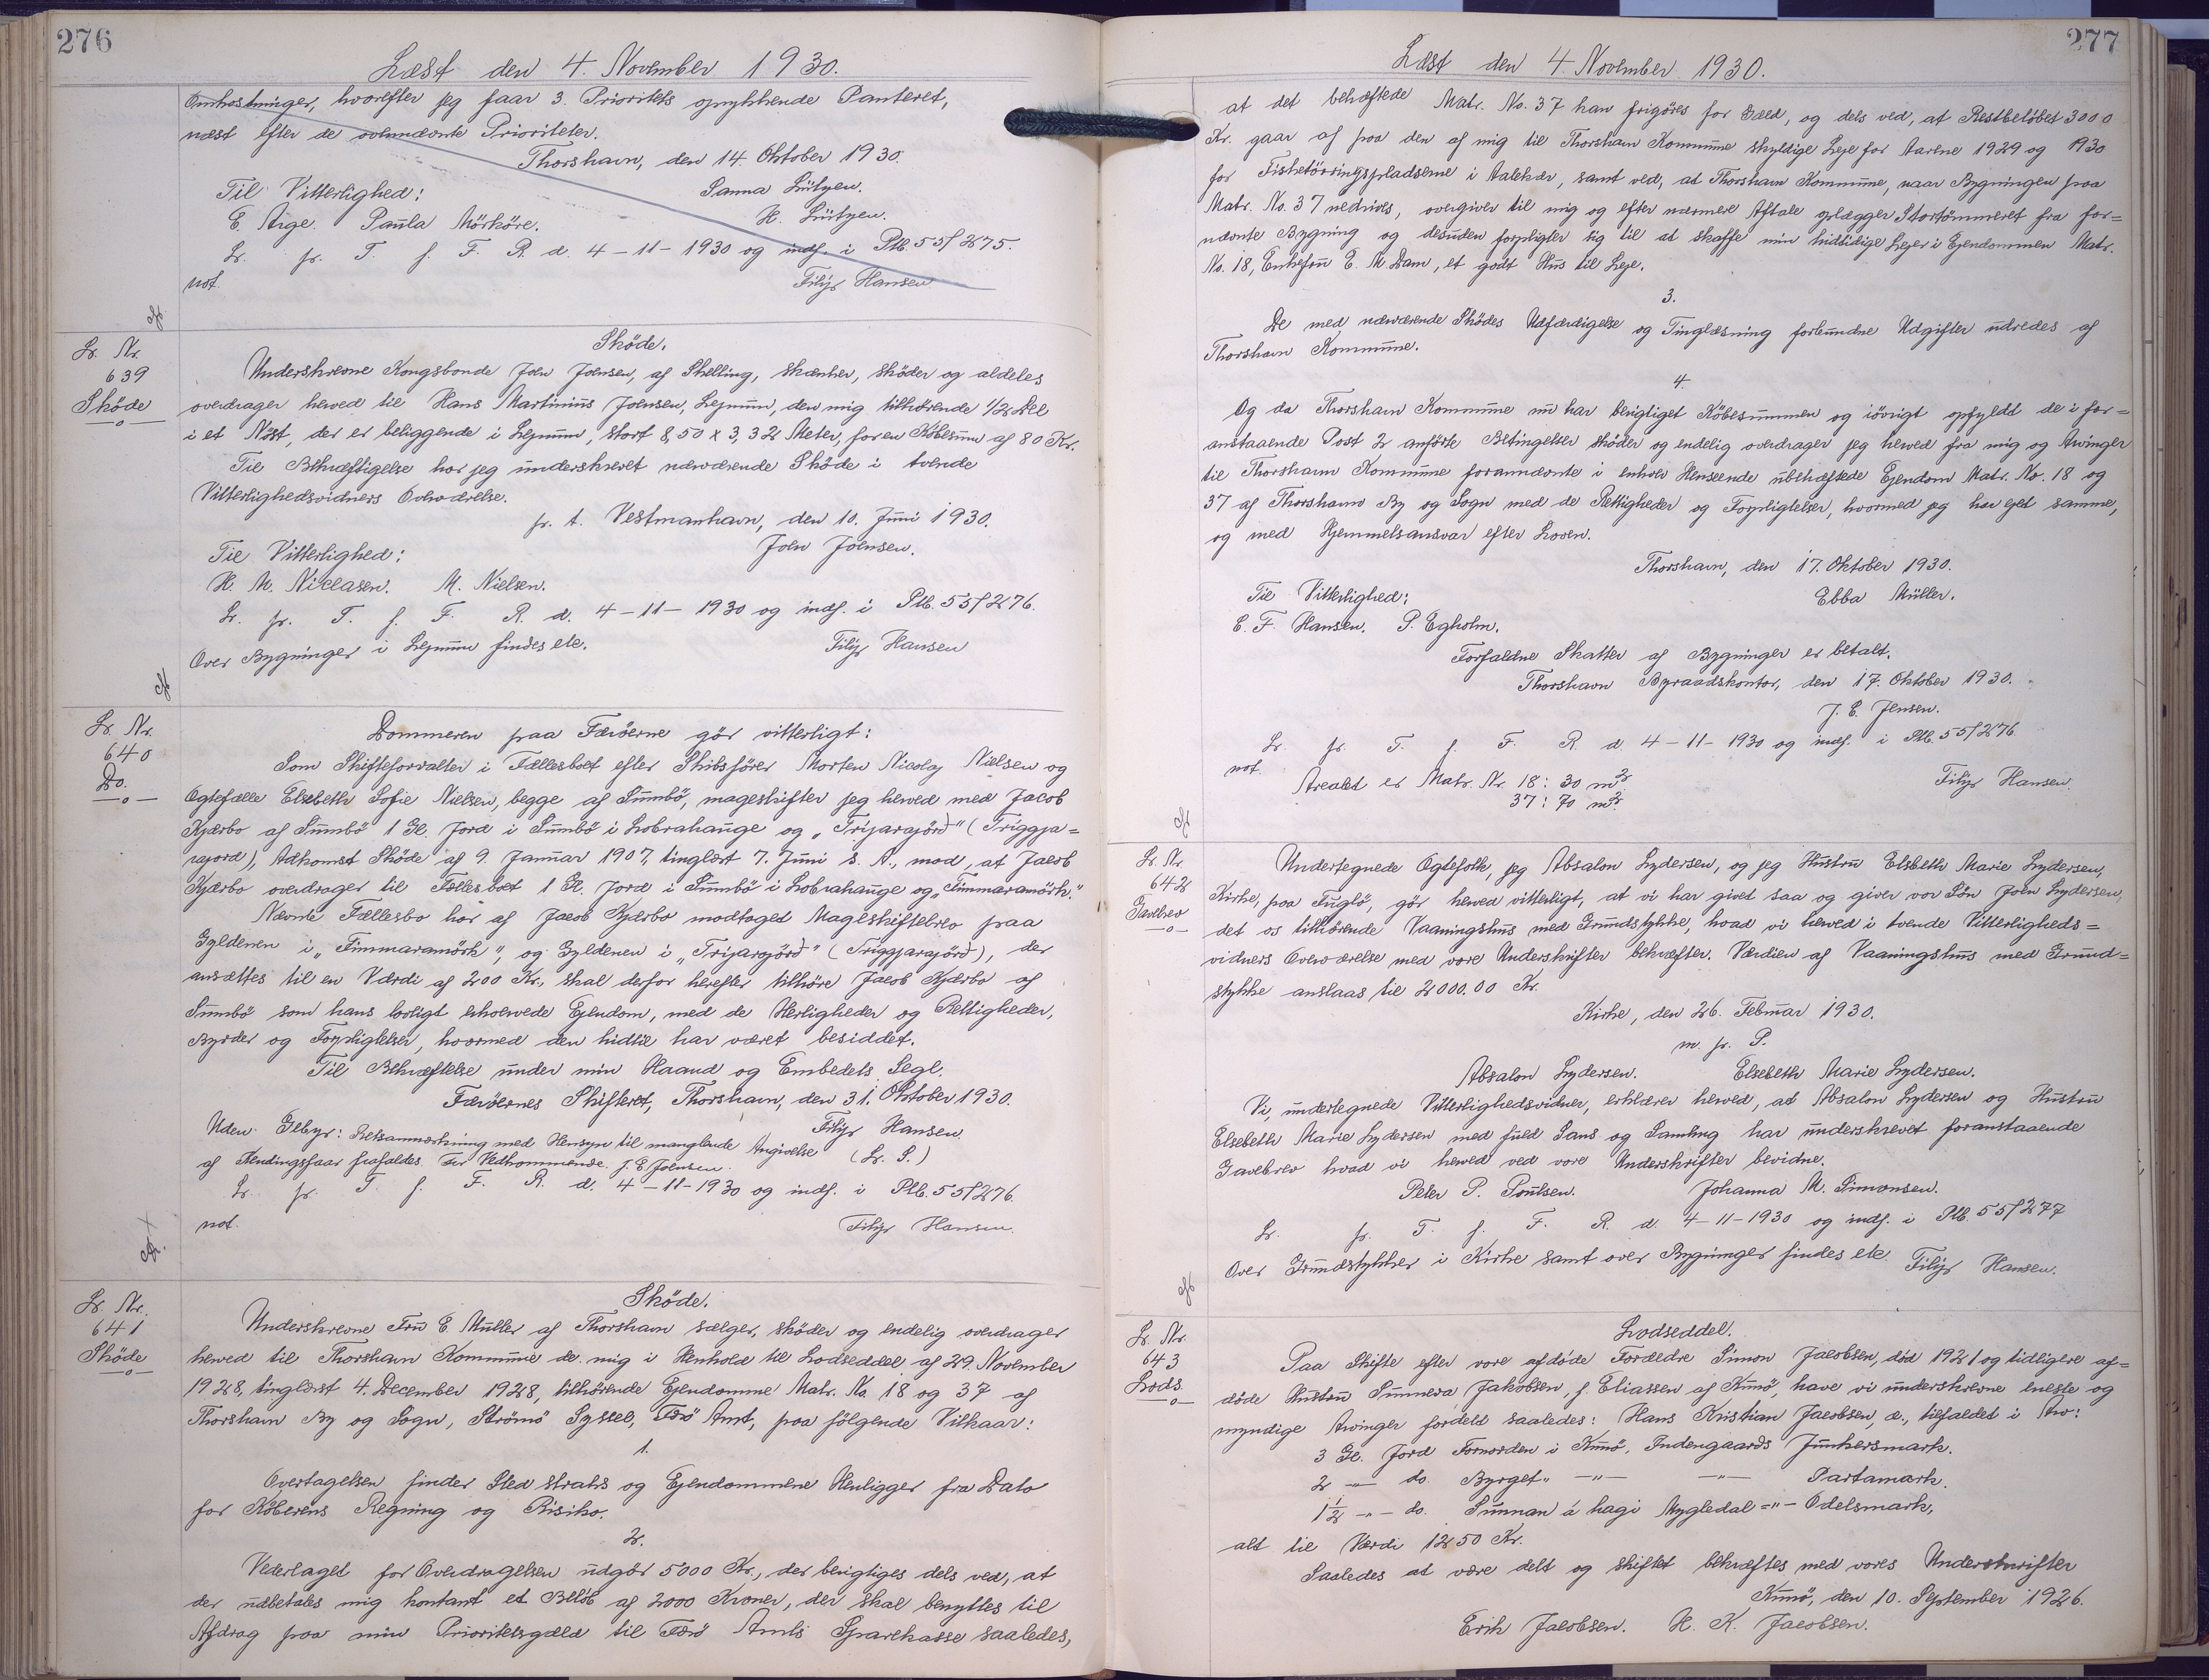 276
Læst den 4. November 1930.
Omkostninger, hvorefter jeg faar 3. Prioritets oprykkende Panteret,
næst efter de ovennævnte Prioriteter.
Thorshavn, den 14. Oktober 1930.
Til Vitterlighed:
Sanna Lützen.
E. Arge. Paula Mörköre.
H. Lützen.
Lr. pr. T. f. F. R. d. 4-11-1930 og indf. i Ptb. 55/275.
not.
Filip Hansen
Lr. Nr.
639
Sköde
Sköde.
Underskrevne Kongsbonde Joen Joensen, af Skelling, skænker, sköder og aldeles
overdrager herved til Hans Martinius Joensen, Lejnum, den mig tilhørende 1/2 Del
i et Nöst, der er beliggende i Lejnum, stort 8,50 x 3,32 Meter, for en Købesum af 80 Kr.
Til Bekræftigelse har jeg underskrevet nærværende Sköde i tvende
Vitterlighedsvidners Overværelse.
p. t. Vestmanhavn, den 10. Juni 1930.
Til Vitterlighed:
Joen Joensen.
H. M. Niclasen. M. Nielsen.
Lr. pr. T. f. F. R. d. 4-11-1930 og indf. i Ptb. 55/276.
Over Bygninger i Lejnum findes etc.
Filip Hansen
Lr. Nr.
640
Do.
Dommeren paa Færöerne gör vitterligt:
Som Skifteforvalter i Fællesboet efter Skibsfører Morten Nicolaj Nielsen og
Ægtefælle Elsebeth Sofie Nielsen, begge af Sumbö, mageskifter jeg herved med Jacob
Kjærbo af Sumbö 1 Gl. Jord i Sumbö i Lobrahauge og „Trijarajörd" (Triggja=
rajord), Adkomst Sköde af 9. Januar 1907, tinglæst 7. Juni s. A., mod, at Jacob
Kjærbo overdrager til Fællesboet 1 Gl. Jord i Sumbö i Lobrahauge og „Timmaramörk".
Nævnte Fællesbo har af Jacob Kjærbo modtaget Mageskiftebrev paa
Gyldenen i „Timmaramörk", og Gyldenen i „Trijarajörd" (Triggjarajörd), der
ansættes til en Værdi af 200 Kr., skal derfor herefter tilhöre Jacob Kjærbo af
Sumbö som hans lovligt erhvervede Ejendom, med de Herligheder og Rettigheder,
Byrder og Forpligtelser, hvormed den hidtil har været besiddet.
Til Bekræftelse under min Haand og Embedets Segl.
Færöernes Skifteret, Thorshavn, den 31. Oktober 1930.
Filip Hansen.
(L. S.)
Uden Gebyr: Retsanmærkning med Hensyn til manglende Angivelse
af Hændingsfaar frafaldes. For Vedkommende. J. E. Joensen.
Lr. pr. T. f. F. R. d. 4-11-1930 og indf. i Ptb. 55/276.
not.
Filip Hansen.
Lr. Nr.
641
Sköde
Sköde.
Underskrevne Fru E. Müller af Thorshavn sælger, sköder og endelig overdrager
herved til Thorshavn Kommune de mig i Henhold til Lodseddel af 29. November
1928, tinglæst 4. December 1928, tilhörende Ejendomme Matr. No. 18 og 37 af
Thorshavn By og Sogn, Strömö Syssel, Færö Amt, paa fölgende Vilkaar:
1.
Overtagelsen finder Sted straks og Ejendommene Henligger fra Dato
for Köberens Regning og Risiko.
2.
Vederlaget for Overdragelsen udgör 5000 Kr., der berigtiges dels ved, at
der udbetales mig kontant et Belöb af 2000 Kroner, der skal benyttes til
Afdrag paa min Prioritetsgæld til Færö Amts Sparekasse saaledes,
277
Læst den 4. November 1930.
at det behæftede Matr. No. 37 kan frigöres for Gæld, og dels ved, at Restbelöbet 3000
Kr. gaar af paa den af mig til Thorshavn Kommune skyldige Leje for Aarene 1929 og 1930
for Fisketörringspladserne i Aalekær, samt ved, at Thorshavn Kommune, naar Bygningen paa
Matr. No. 37 nedrives, overgiver til mig og efter nærmere Aftale oplægger Stortömmeret fra for=
nævnte Bygning og desuden forpligter sig til at skaffe min hidtidige Lejer i Ejendommen Matr.
No. 18, Enkefru E. M. Dam, et godt Hus til Leje.
3.
De med nærværende Skødes Udfærdigelse og Tinglæsning forbundne Udgifter udredes af
Thorshavn Kommune.
4.
Og da Thorshavn Kommune nu har berigtiget Købesummen og iövrigt opfyldt de i for=
anstaaende Post 2 anförte Betingelser sköder og endelig overdrager jeg herved fra mig og Arvinger
til Thorshavn Kommune forannævnte i enhver Henseende ubehæftede Ejendom Matr. No. 18 og
37 af Thorshavn By og Sogn med de Rettigheder og Forpligtelser, hvormed jeg har ejet samme,
og med Hjemmelsansvar efter Loven.
Thorshavn, den 17. Oktober 1930.
Til Vitterlighed:
Ebba Müller.
E. F. Hansen. P. Egholm.
Forfaldne Skatter af Bygninger er betalt.
Thorshavn Byraadskontor, den 17. Oktober 1930.
J. E. Jensen.
Lr. pr. T. f. F. R. d. 4-11-1930 og indf. i Ptb. 55/276.
not.
Arealet er Matr. Nr. 18: 30 m².
37: 70 m².
Filip Hansen.
Lr. Nr.
642
Gavebrev
Undertegnede Ægtefolk, jeg Absalon Lydersen, og jeg Hustru Elsbeth Marie Lydersen,
Kirke, paa Fuglö, gör herved vitterligt, at vi har givet saa og giver vor Sön Joen Lydersen,
det os tilhörende Vaaningshus med Grundstykke, hvad vi herved i tvende Vitterligheds=
vidners Overværelse med vore Underskrifter bekræfter. Værdien af Vaaningshus med Grund=
stykke anslaas til 2000.00 Kr.
Kirke, den 26. Februar 1930.
m. p. P.
Absalon Lydersen. Elsebeth Marie Lydersen.
Vi, undertegnede Vitterlighedsvidner, erklærer herved, at Absalon Lydersen og Hustru
Elsebeth Marie Lydersen med fuld Sans og Samling har underskrevet foranstaaende
Gavebrev hvad vi herved ved vore Underskrifter bevidne.
Peter P. Poulsen. Johanna M. Simonsen.
Lr. pr. T. f. F. R. d. 4-11-1930 og indf. i Ptb. 55/277
Over Grundstykker i Kirke samt over Bygninger findes etc. Filip Hansen.
Lr. Nr.
643
Lods
Lodseddel.
Paa Skifte efter vore afdöde Forældre Simon Jacobsen, död 1921 og tidligere af=
döde Hustru Sunneva Jakobsen, f. Eliassen af Kunö, have vi underskrevne eneste og
myndige Arvinger fordelt saaledes: Hans Kristian Jacobsen, æ., tilfaldet i Arv:
3 Gl. Jord Fornorden i Kunö, Indengaards Junkersmark.
2 -"- do. Byrget" -"- -"- Partamark.
1½ -"- do. Sunnan á hagi Mygledal -"- Odelsmark,
alt til Værdi 1250 Kr.
Saaledes at være delt og skiftet bekræftes med vores Underskrifter
Kunö, den 10. September 1926.
Erik Jacobsen. H. K. Jacobsen.